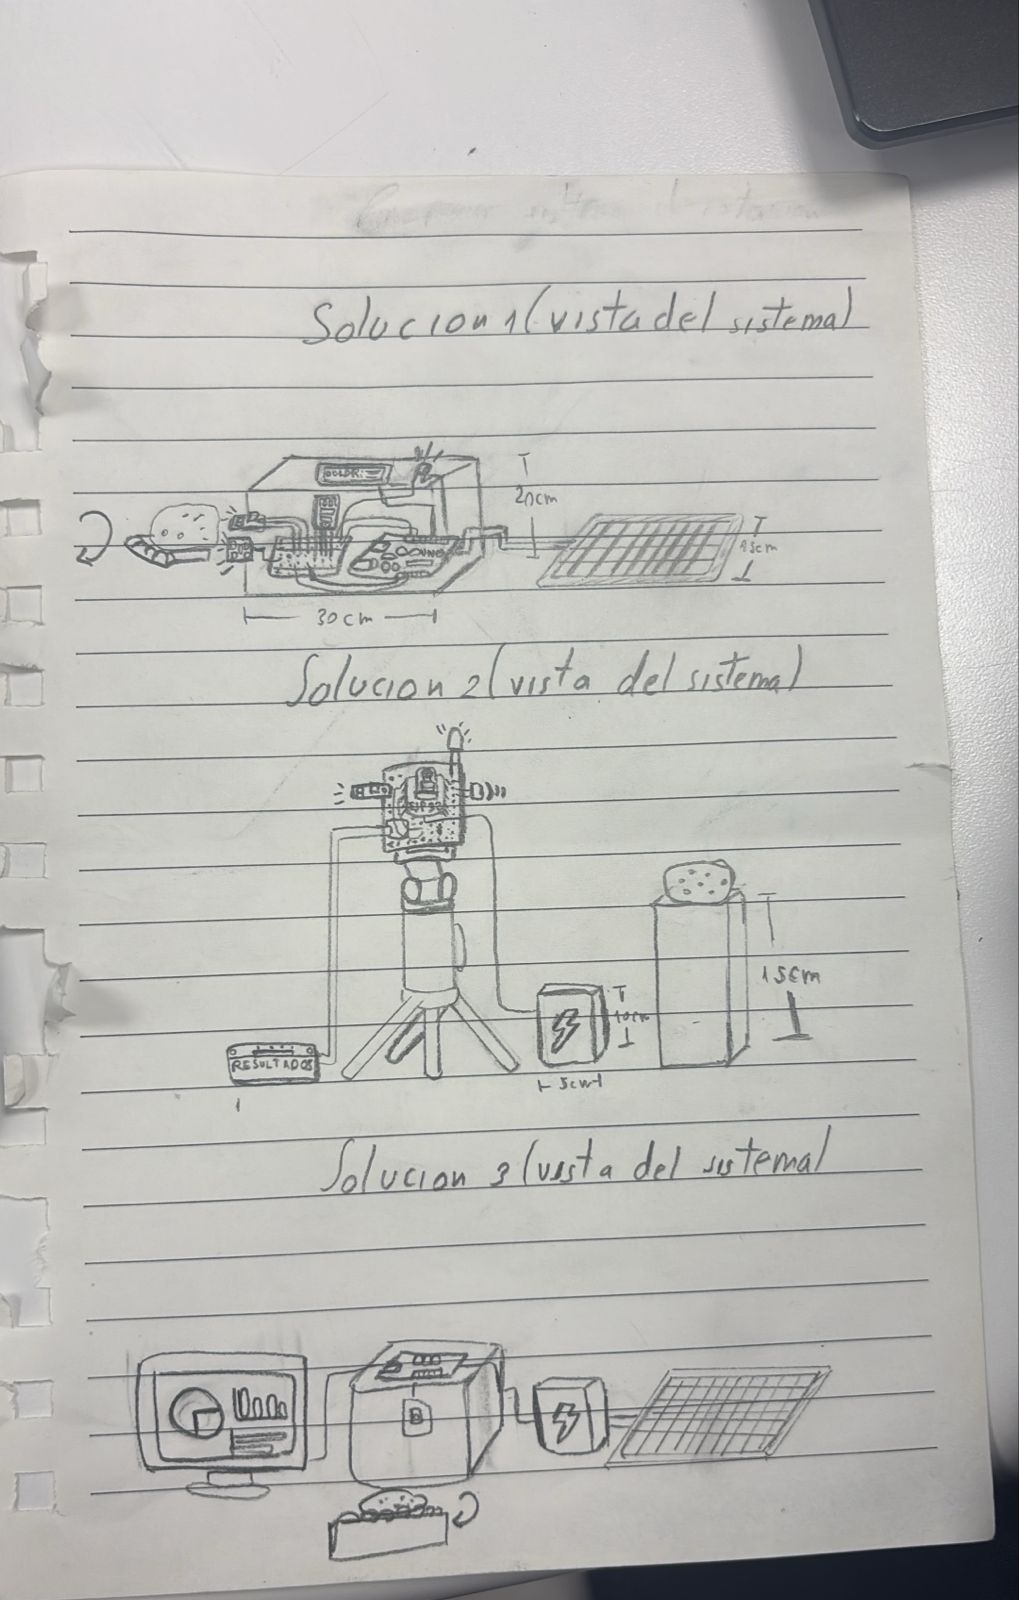 Solucion 1 (vista del sistema)
20cm
15cm
30cm
Solucion 2 (vista del sistema)
15cm
10cm
RESULTADOS
5cm
Solucion 3 (vista del sistema)
B